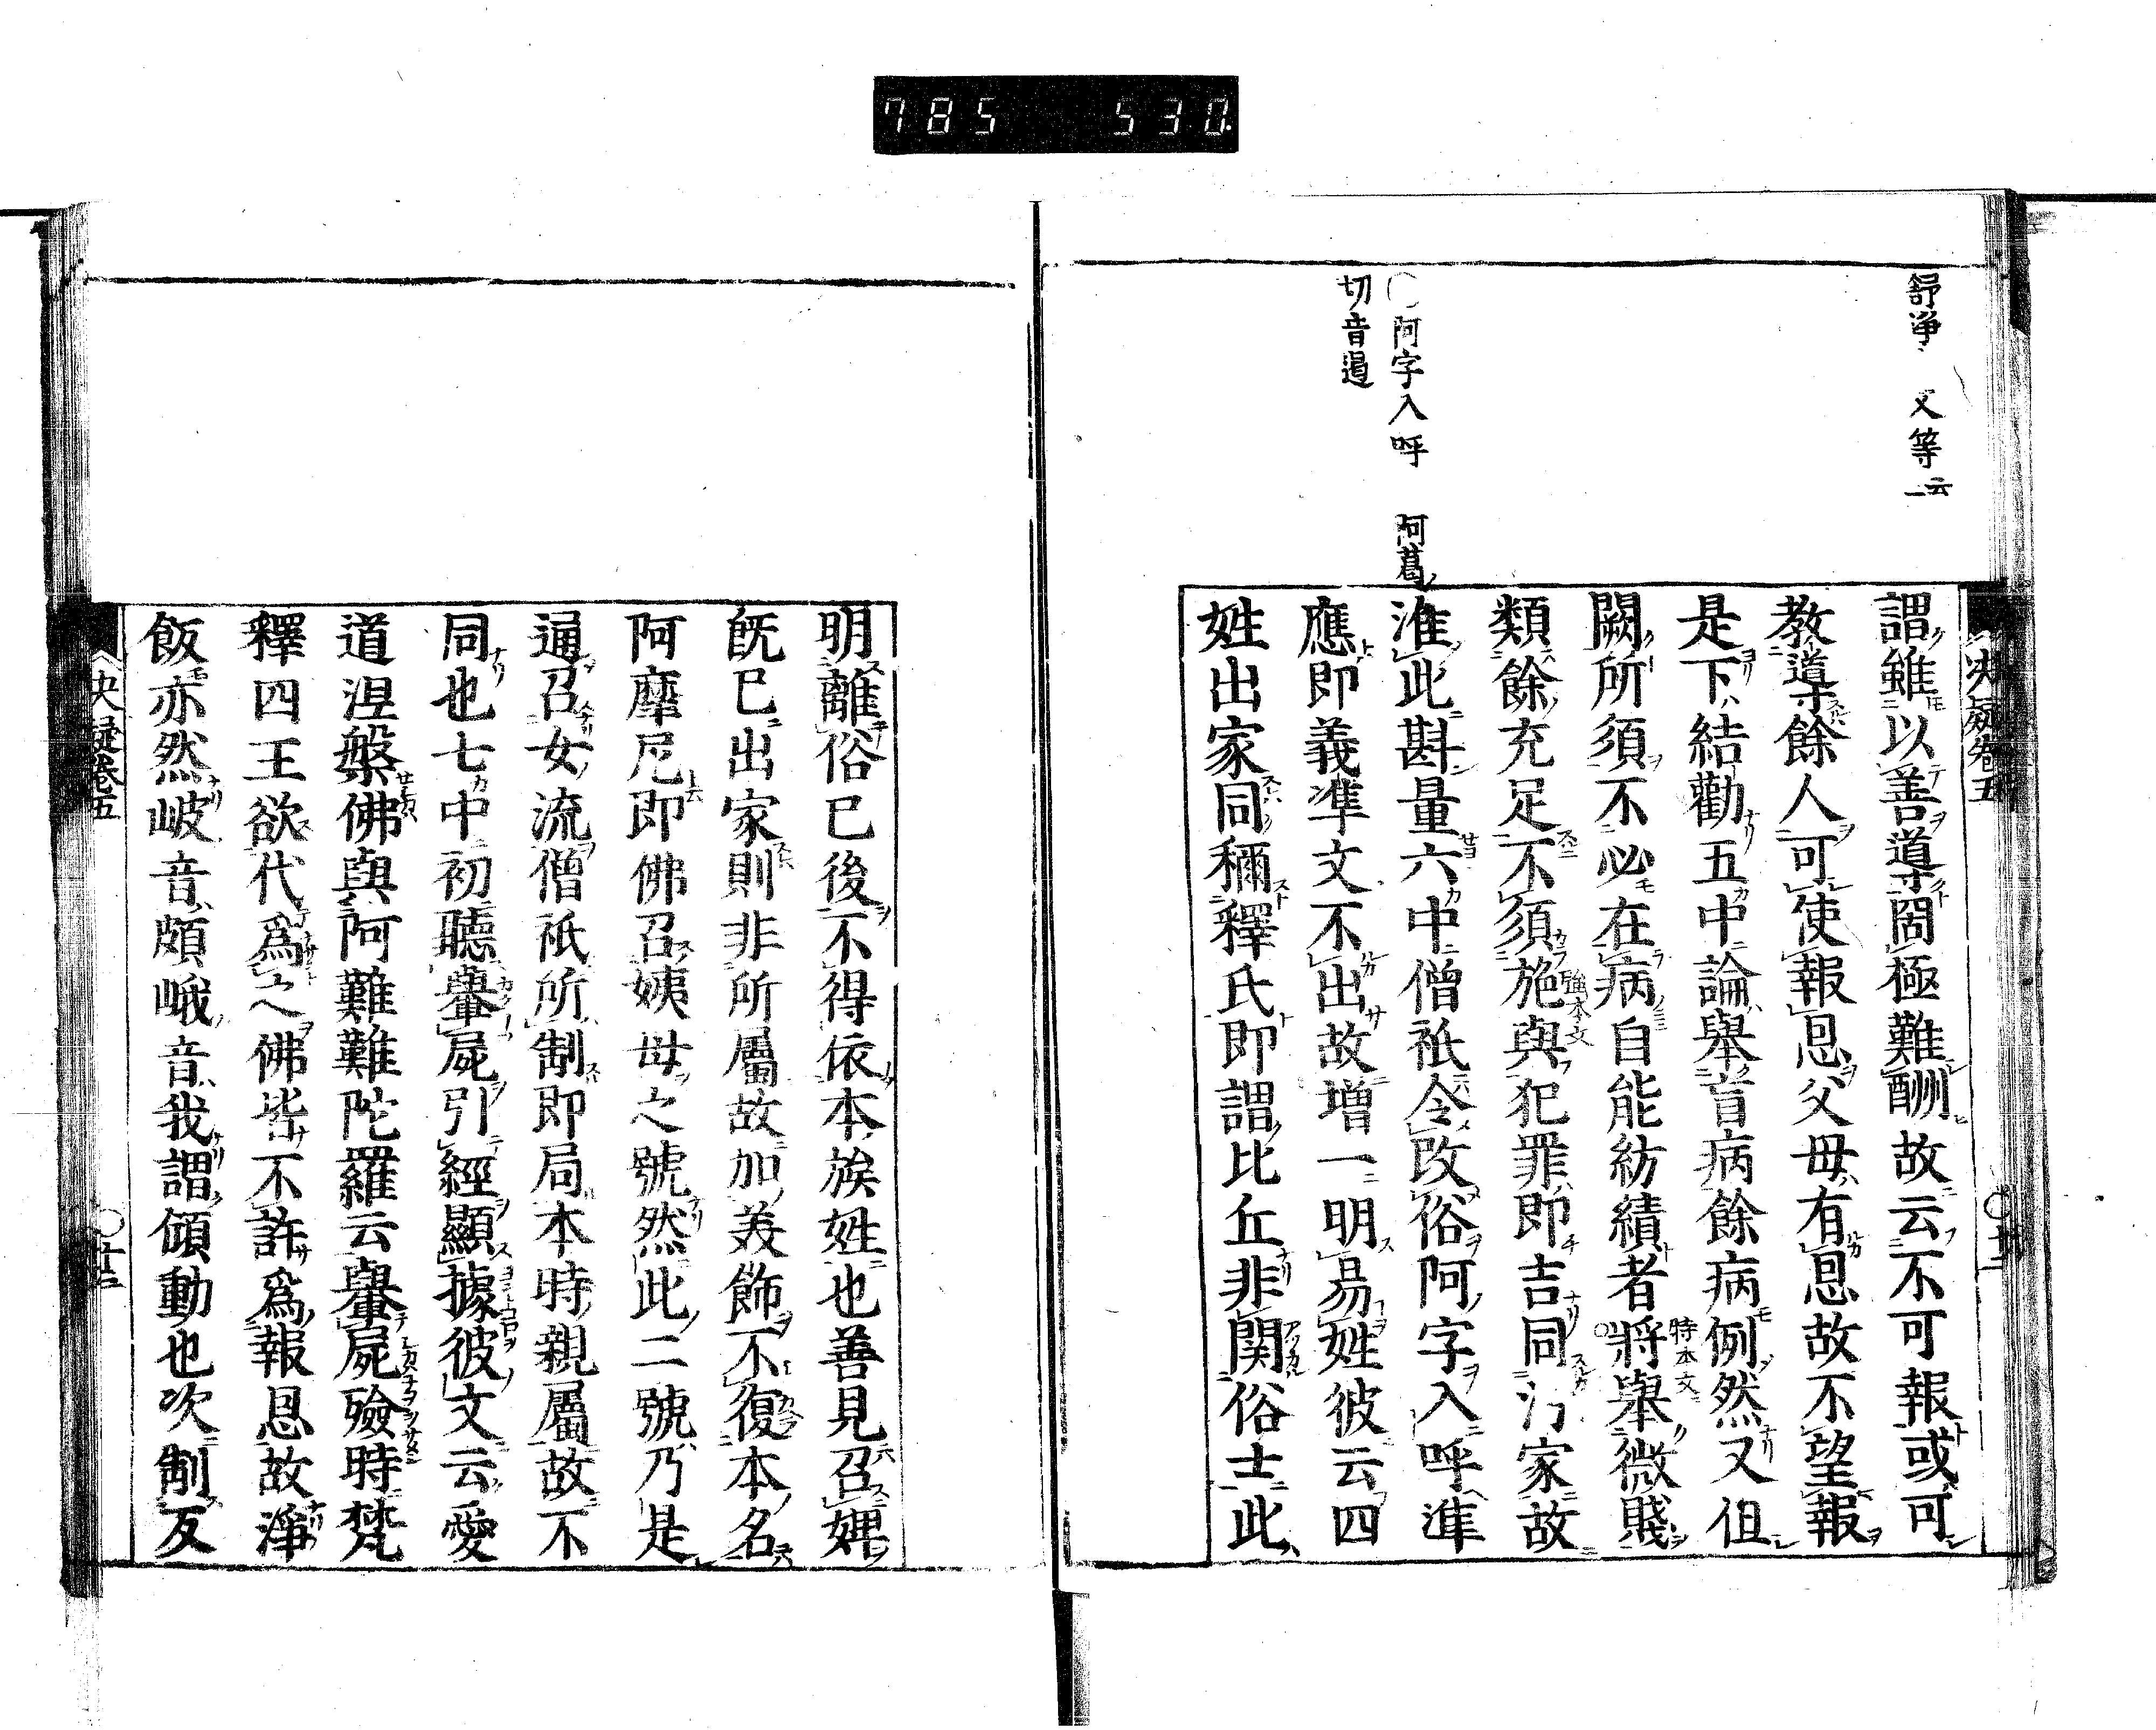 785 530
舒淨 又等云
謂雖以善導罔極難酬故云不可報或可
教導餘人可使報恩父母有恩故不望報
是下結勸五中論舉盲病餘病例然又但
闕所須不必在病自能紡績者將舉微賤
類餘充足不須施與犯罪即吉同汚家故
準此斟量六中僧祇令改俗阿字入呼準
應即義準文不出故增一明易姓彼云四
姓出家同稱釋氏即謂比丘非關俗士此
特本文
強本文
阿字入呼 阿葛
切音遏
決疑卷五
明離俗已後不得依本族姓也善見召婢
既已出家則非所屬故加美飾不復本名
阿摩尼即佛召姨母之號然此二號乃是
通召女流僧祇所制即局本時親屬故不
同也七中初聽轝屍引經顯據彼文云愛
道涅槃佛與阿難難陀羅云轝屍殮時梵
釋四王欲代爲之佛皆不許爲報恩故淨
飯亦然岥音頗峨音我謂傾動也次制反
決疑卷五
廿二